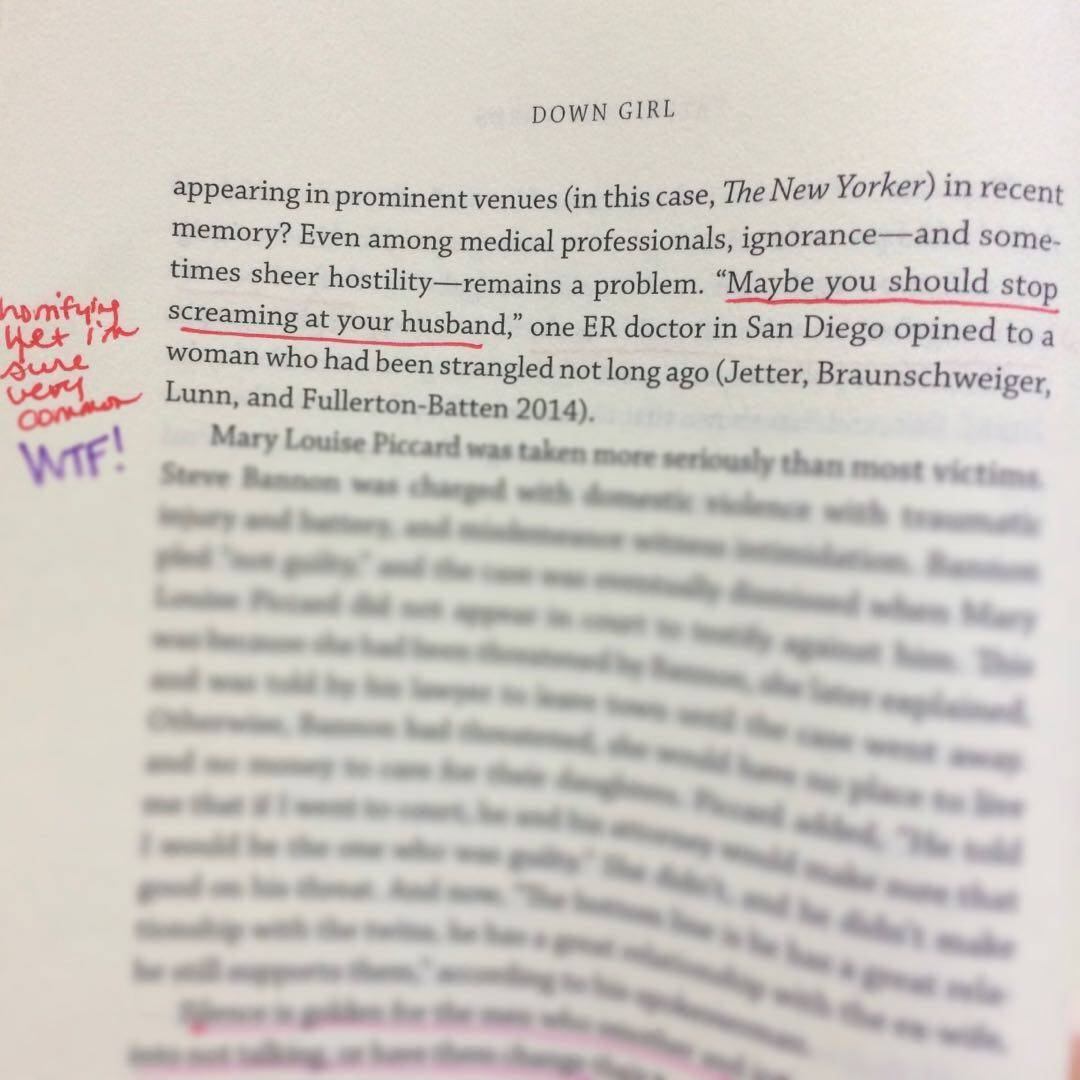 DOWN GIRL
appearing in prominent venues (in this case, The New Yorker) in recent
memory? Even among medical professionals, ignorance—and some-
times sheer hostility—remains a problem. “Maybe you should stop
screaming at your husband,” one ER doctor in San Diego opined to a
woman who had been strangled not long ago (Jetter, Braunschweiger,
Lunn, and Fullerton-Batten 2014).
horrifying
yet i'm
sure
very
common
WTF!
Mary Louise Piccard was taken more seriously than most victims.
Steve Bannon was charged with domestic violence with traumatic
injury and battery, and misdemeanor witness intimidation. Bannon
pled “not guilty,” and the case was eventually dismissed when Mary
Louise Piccard did not appear in court to testify against him. This
was because she had been threatened by Bannon, she later explained,
and was told by his lawyer to leave town until the case went away.
Otherwise, Bannon had threatened, she would have no place to live
and no money to care for their daughters. Piccard added, “He told
me that if I went to court, he and his attorney would make sure that
I would be the one who was guilty.” She didn’t, and he didn’t make
good on his threat. And now, “The bottom line is he has a great rela-
tionship with the twins, he has a great relationship with the ex-wife,
he still supports them,” according to his spokeswoman.
Silence is golden for the men who smother and
into not talking, or have them change their